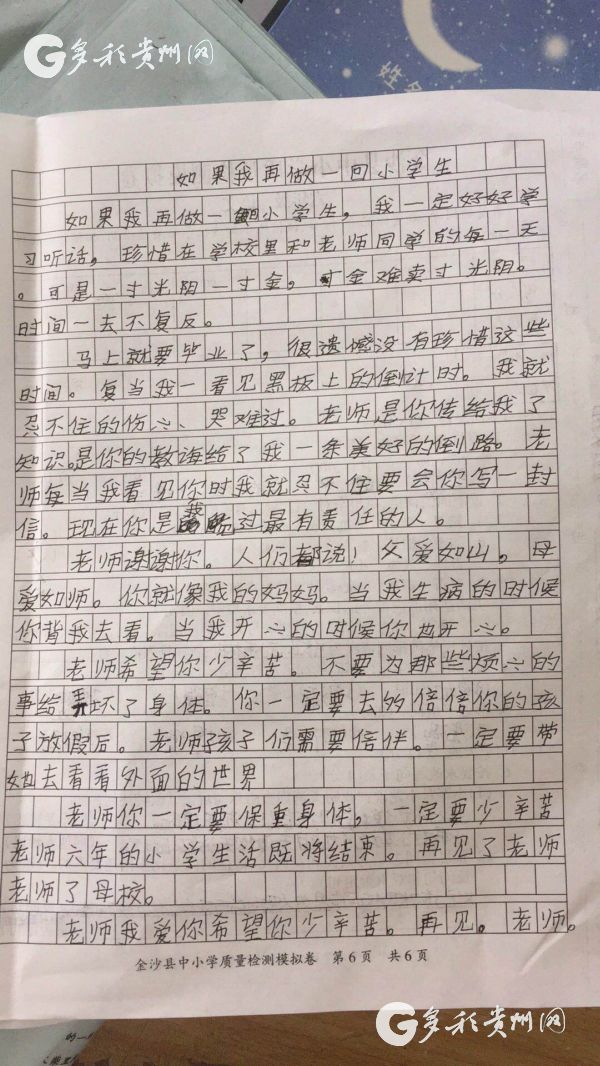 多彩贵州网
姓名
如果我再做一回小学生
如果我再做一回小学生，我一定好好学
习听话，珍惜在学校里和老师同学的每一天
。可是一寸光阴一寸金，寸金难卖寸光阴。
时间一去不复反。
马上就要毕业了，很遗憾没有珍惜这些
时间。复当我一看见黑板上的倒计时。我就
忍不住的伤心、哭难过。老师是你传给我了
知识。是你的教诲给了我一条美好的倒路。老
师每当我看见你时我就忍不住要会你写一封
信。现在你是我过最有责任的人。
老师谢谢你。人们都说！父爱如山。母
爱如师。你就像我的妈妈。当我生病的时候
你背我去看。当我开心的时候你也开心。
老师希望你少辛苦。不要为那些烦心的
事给弄坏了身体。你一定要去多倍倍你的孩
子放假后。老师孩子们需要倍伴。一定要带
她去看看外面的世界
老师你一定要保重身体，一定要少辛苦
老师六年的小学生活既将结束。再见了老师
老师了母校。
老师我爱你希望你少辛苦。再见。老师。
金沙县中小学质量检测模拟卷 第6页 共6页
多彩贵州网